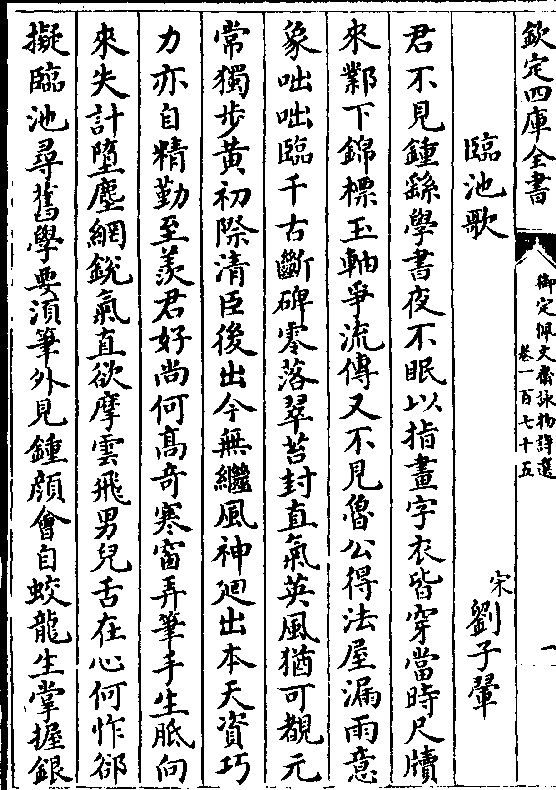 欽定四庫全書
御定佩文齋詠物詩選
卷一百七十五
一
臨池歌
宋劉子翬
君不見鍾繇學書夜不眠以指畫字衣皆穿當時尺牘
來鄴下錦標玉軸爭流傳又不見魯公得法屋漏雨意
象咄咄臨千古斷碑零落翠苔封直氣英風猶可覩元
常獨步黃初際清臣後出今無繼風神迥出本天資巧
力亦自精勤至羨君好尚何髙奇寒窗弄筆手生胝向
來失計墮塵網銳氣直欲摩雲飛男兒舌在心何怍郤
擬臨池尋舊學要須筆外見鍾顔會自蛟龍生掌握銀